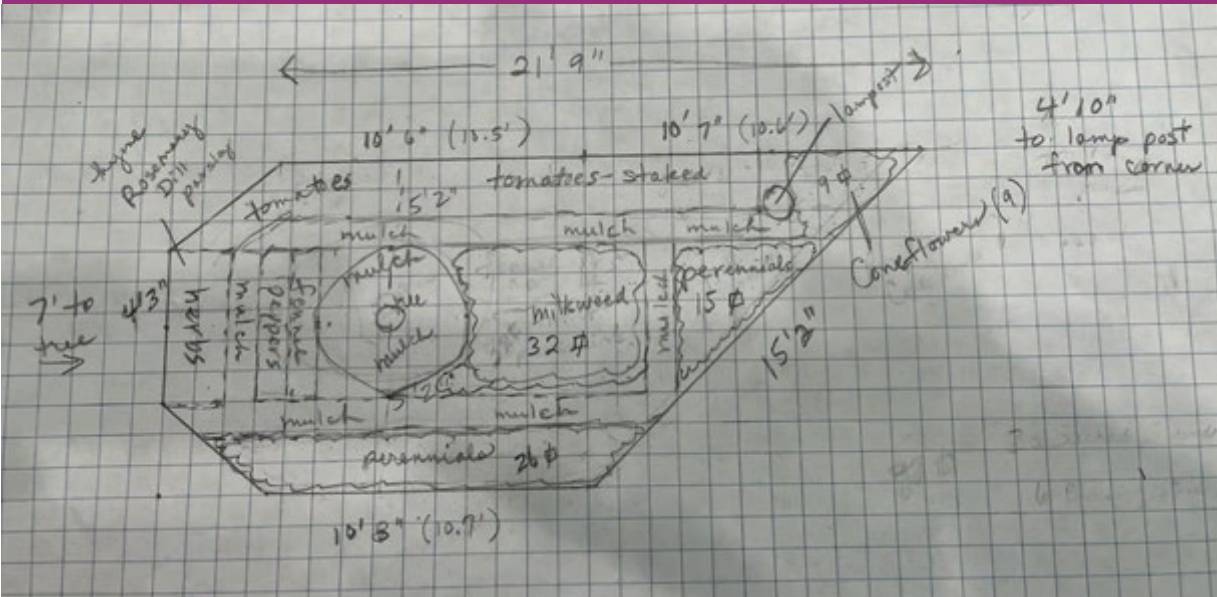 21' 9"
10' 6" (10.5')
10' 7" (10.6')
lampost
4' 10"
to lamp post
from corner
thyme
Rosemary
Dill
parsley
tomatoes
5' 2"
tomatoes-staked
9 ⌀
Coneflowers (9)
mulch
mulch
mulch
7' to
tree
4' 3"
herbs
mulch
peppers
mulch
tree
mulch
milkweed
32 ⌀
mulch
perennials
15 ⌀
15' 2"
mulch
mulch
perennials 26 ⌀
10' 8" (10.7')